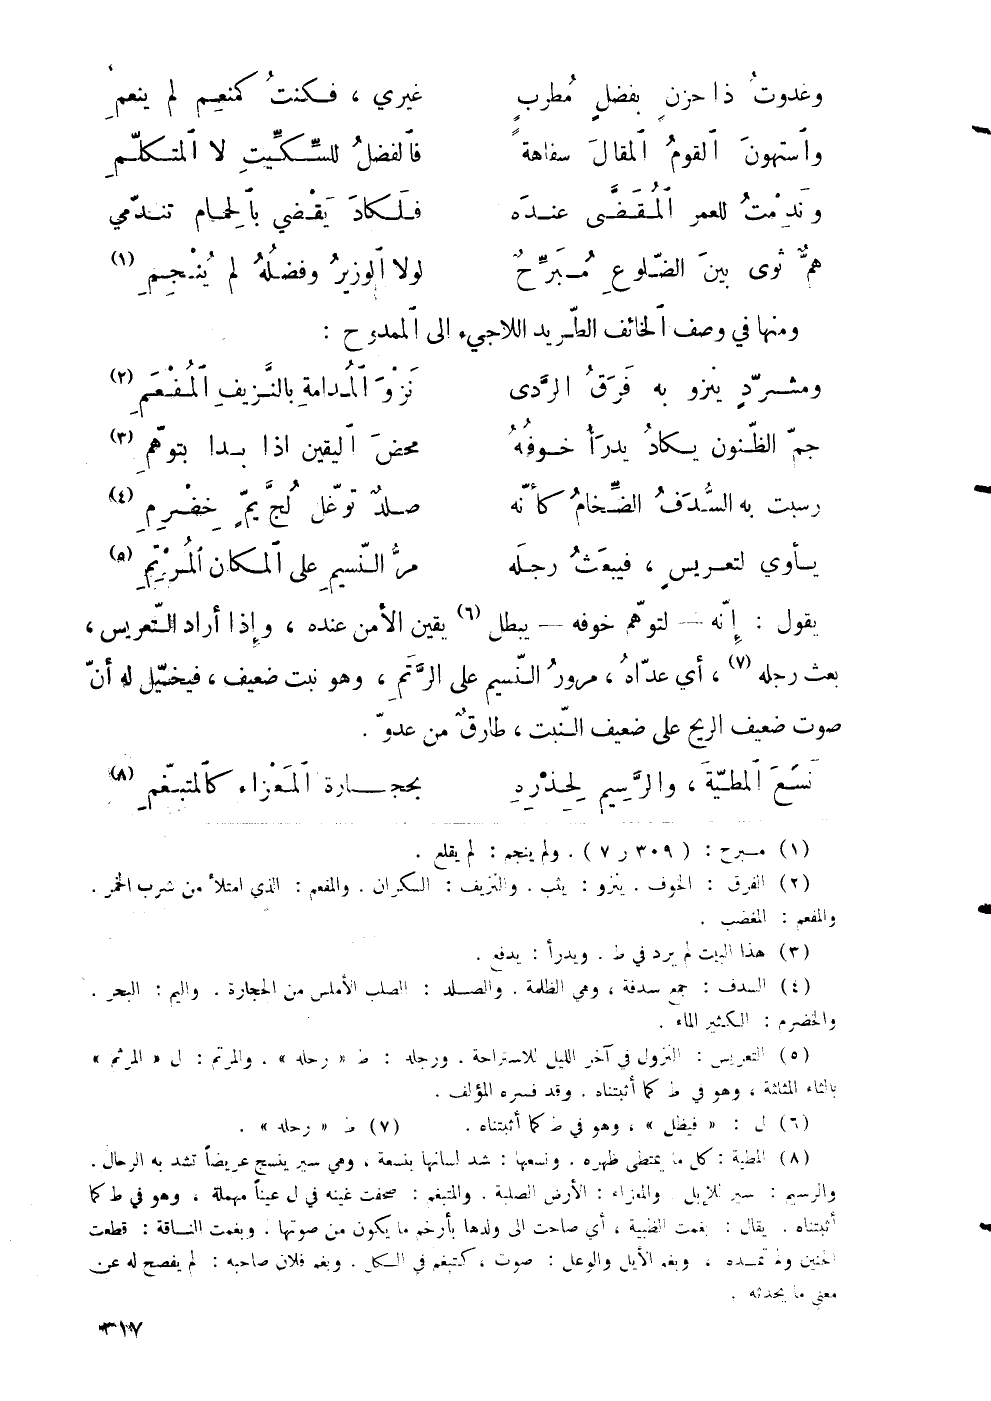 وغدوتُ ذا حزنٍ بفضلٍ مُطربٍ غيري ، فكنتُ كمنعِم لم ينعمِ
وٱستهونَ ٱلقومُ ٱلمقالَ سفاهةً فٱلفضلُ للسِّكّيتِ لا ٱلمتكلّمِ
ونَدِمْتُ للعمر ٱلمُقَضَّى عنده فلَكادَ يَقْضي بٱلحِمام تندّمي
همٌّ ثوى بينَ الضّلوعِ مُبَرِّحٌ لولا ٱلوزيرُ وفضلُهُ لم يُنْجِمِ (١)
ومنها في وصف ٱلخائف الطّريد اللاجيء الى ٱلممدوح :
ومشرّدٍ ينزو به فَرَقُ الرَّدى نَزْوَ ٱلمُدامةِ بالنَّزيفِ ٱلمُفْعَمِ (٢)
جمّ الظّنون يكادُ يدرَأُ خوفُهُ محضَ ٱليقين اذا بدا بتوهّمِ (٣)
رسبت به السُّدَفُ الضِّخامُ كأنّه صلدٌ توغّل لُجَّ يمٍّ خِضْرِمِ (٤)
يأوي لتعريسٍ ، فيبعَثُ رجلَه مرُّ النّسيمِ على ٱلمكان ٱلمُرْتِمِ (٥)
يقول : إنّه — لتوهّم خوفه — يبطل (٦) يقين الأمن عنده ، وإذا أراد التّعريس ،
بعث رجله (٧) ، أي عدّاهُ ، مرورُ النّسيم على الرَّتَمِ ، وهو نبت ضعيف ، فيخيّل له أنّ
صوت ضعيف الريح على ضعيف النّبت ، طارقٌ من عدوّ .
نَسَعَ ٱلمطيّةَ ، والرَّسِيم لِحِذْرِهِ بحجارة ٱلمَعْزاء كٱلمتبغّمِ (٨)
(١) مبرح : ( ٣٠٩ ر ٧ ) . ولم ينجم : لم يقلع .
(٢) الفرق : الخوف . ينزو : يثب . والنزيف : السكران . والمفعم : الذي امتلأ من شرب الخمر .
والمفعم : المغضب .
(٣) هذا البيت لم يرد في ط . ويدرأ : يدفع .
(٤) السدف : جمع سدفة ، وهي الظلمة . والصلد : الصلب الأملس من الحجارة . واليم : البحر .
والخضرم : الكثير الماء .
(٥) التعريس : النزول في آخر الليل للاستراحة . ورجله : ط « رحله » . والمرتم : ل « المرثم »
بالثاء المثلثة ، وهو في ط كما أثبتناه . وقد فسره المؤلف .
(٦) ل : « فيظل » ، وهو في ط كما أثبتناه . (٧) ط « رحله » .
(٨) المطية : كل ما يمتطى ظهره . ونسعها : شد لسانها بنسعة ، وهي سير ينسج عريضاً تشد به الرحال .
والرسيم : سير للإبل . والمعزاء : الأرض الصلبة . والمتبغم : صحفت غينه في ل عيناً مهملة ، وهو في ط كما
أثبتناه . يقال : بغمت الظبية ، أي صاحت الى ولدها بأرخم ما يكون من صوتها . وبغمت الناقة : قطعت
الحنين ولم تمده ، وبغم الأيل والوعل : صوت ، كتبغم في الكل . وبغم فلان صاحبه : لم يفصح له عن
معنى ما يحدثه .
٣١٧